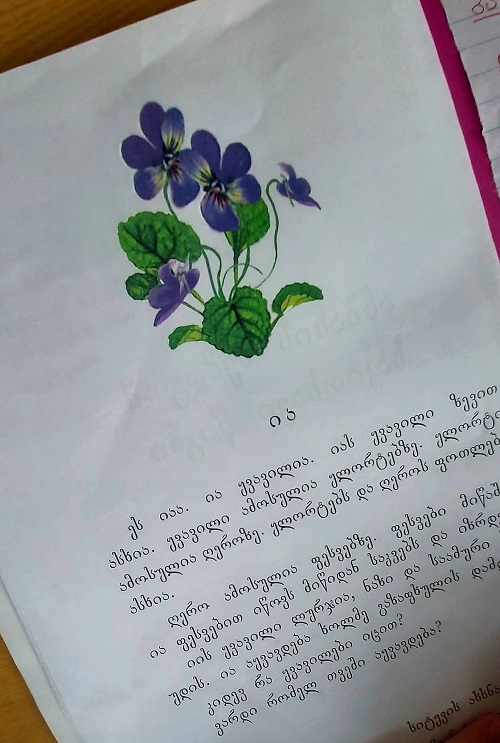 ია
ეს იაა. ია ყვავილია. იას ყვავილი ზევით
ასხია. ყვავილი ამოსულია ყლორტებზე. ყლორტე
ამოსულია ღეროზე. ყლორტებს და ღეროს ფოთლებ
ასხია.
ღერო ამოსულია ფესვებზე. ფესვები მიწაშ
ია ფესვებით იწოვს მიწიდან საკვებს და იზრდე
იის ყვავილი ლურჯია, ნაზი და საამური
უდის. ია აყვავდება ხოლმე გაზაფხულის დამდ
კიდევ რა ყვავილები იცით?
ვარდი რომელ თვეში აყვავდება?
სიტყვის ახსნა